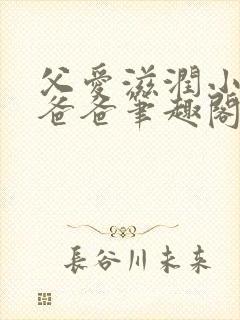 父愛滋潤小
爸爸筆趣閣
長谷川未来